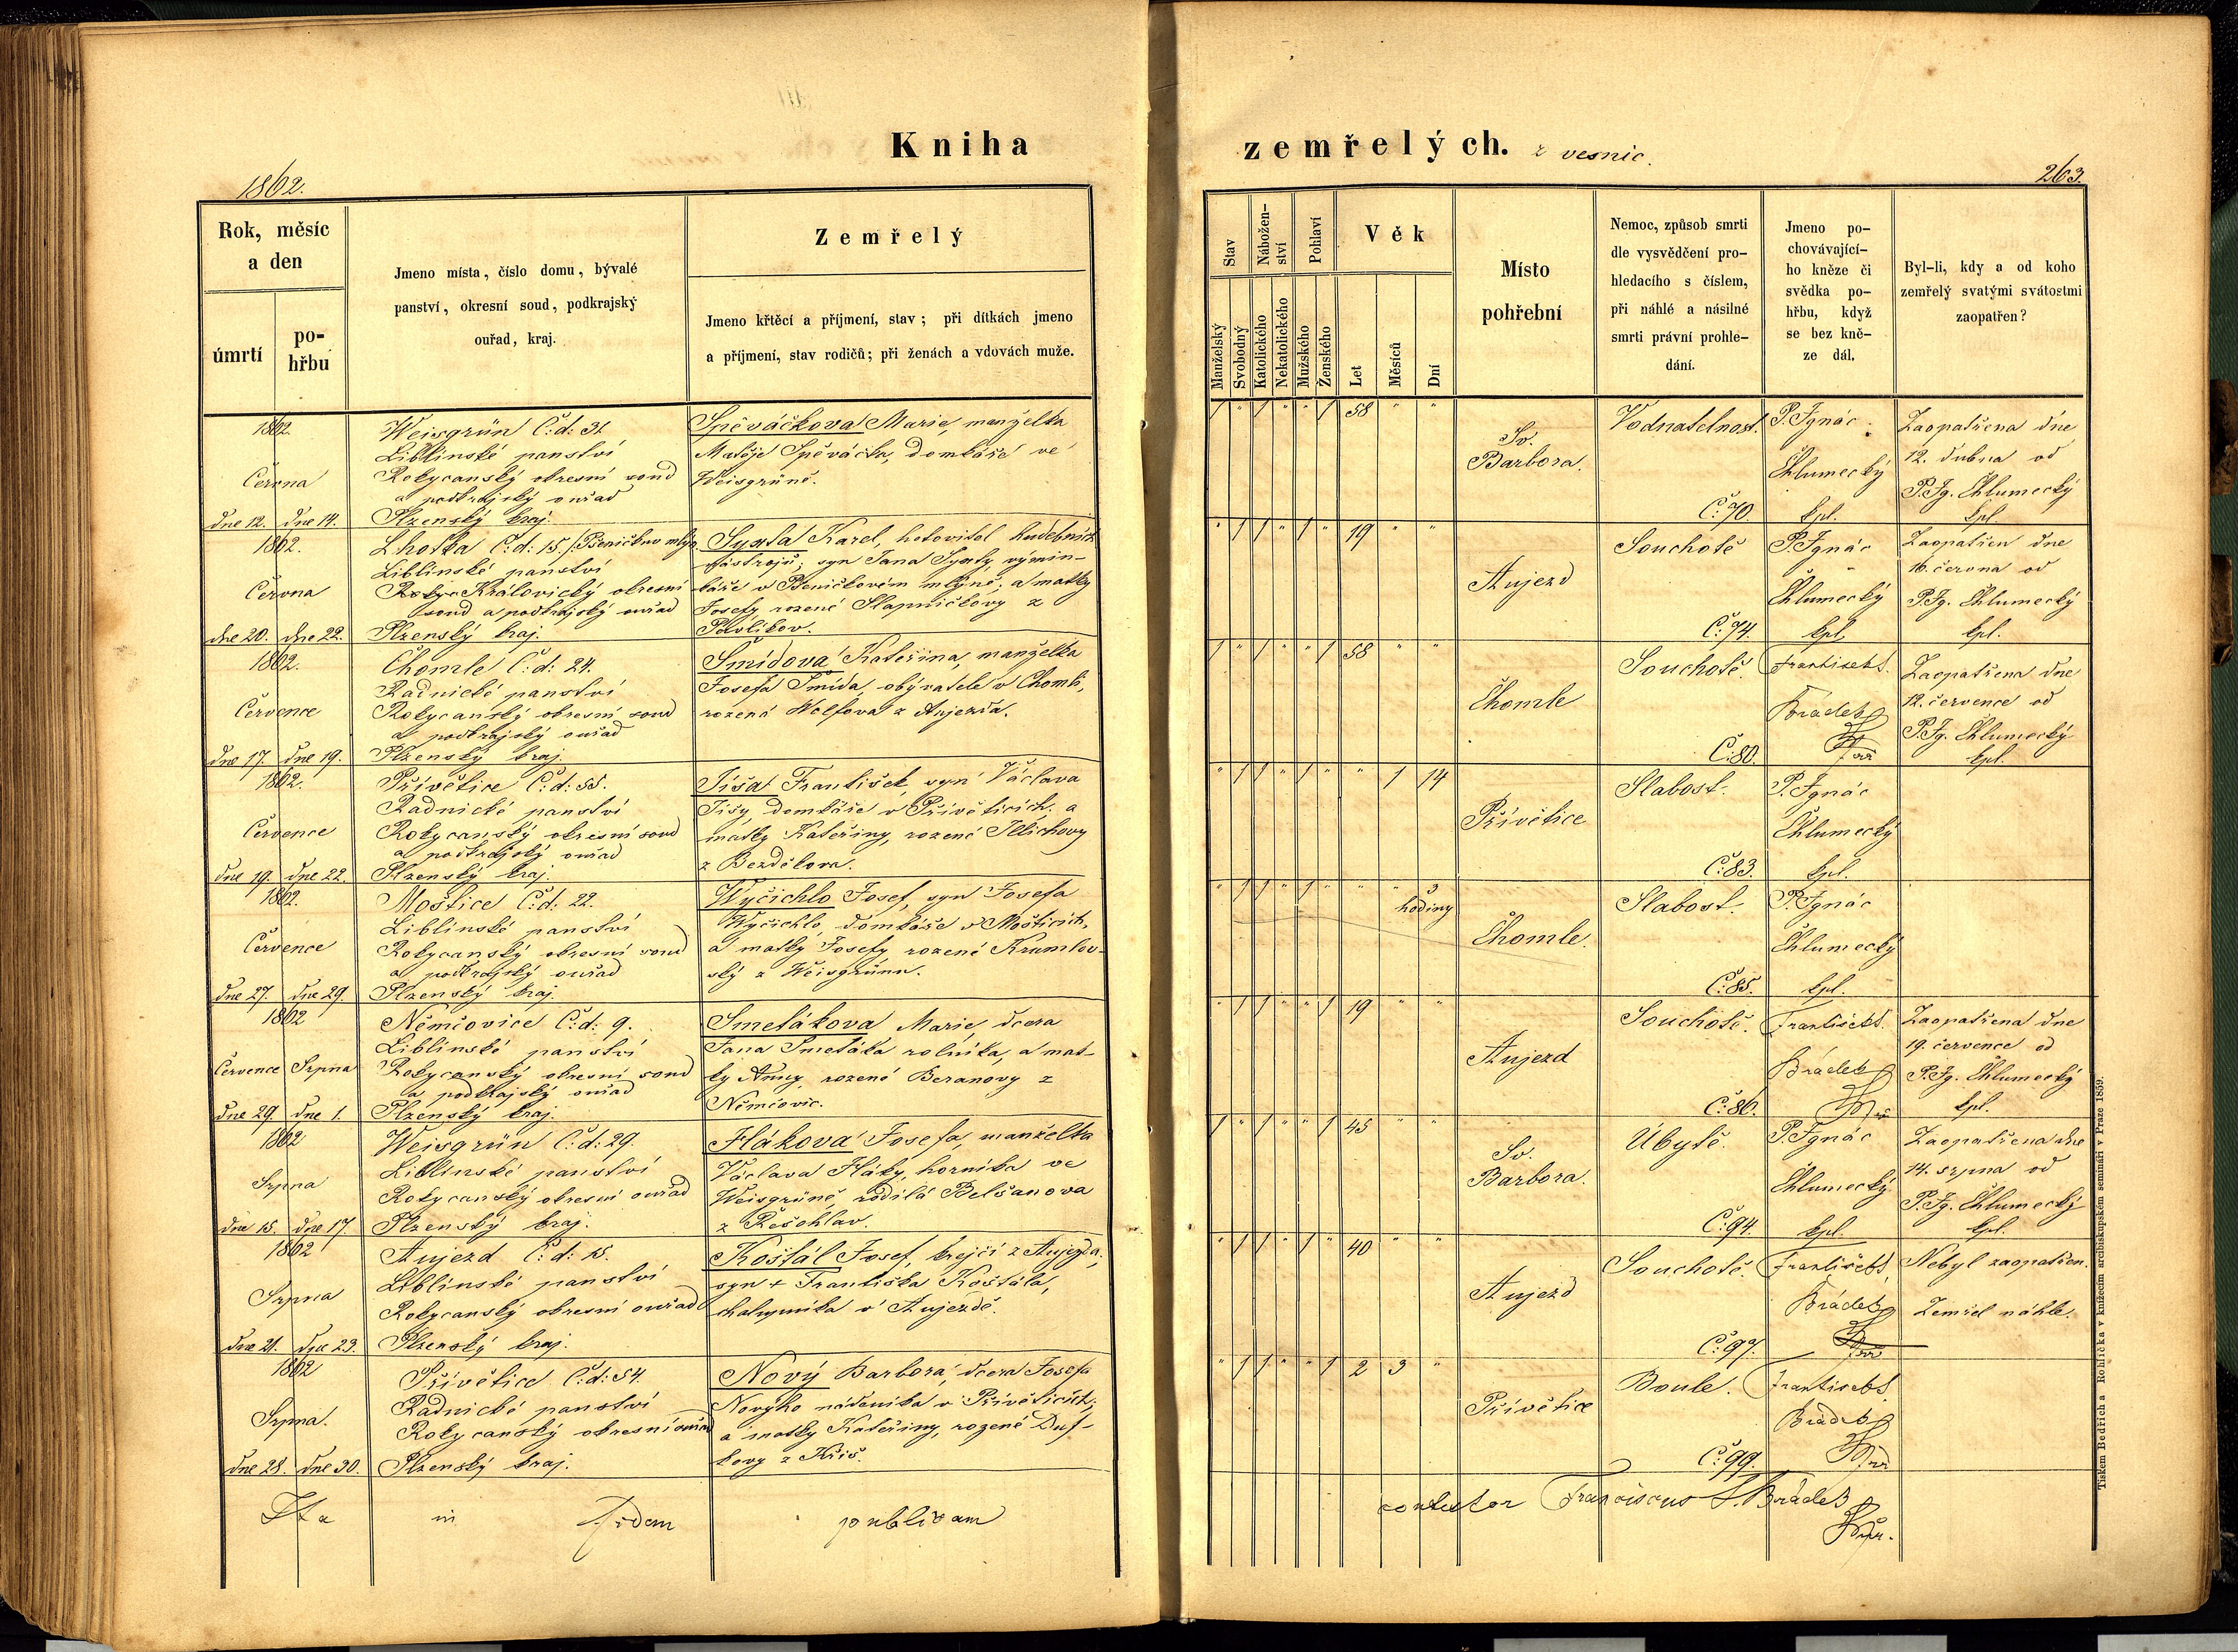 Kniha
zemřelých. z vesnic.
1862.
263.
Rok, měsíc
a den
úmrtí
po-
hřbu
Jmeno místa, číslo domu, bývalé
panství, okresní soud, podkrajský
ouřad, kraj.
Zemřelý
Jmeno křtěcí a příjmení, stav; při dítkách jmeno
a příjmení, stav rodičů; při ženách a vdovách muže.
Stav
Manželský
Svobodný
Nábožen-
ství
Katolického
Nekatolického
Pohlaví
Mužského
Ženského
Věk
Let
Měsíců
Dní
Místo
pohřební
Nemoc, způsob smrti
dle vysvědčení pro-
hledacího s číslem,
při náhlé a násilné
smrti právní prohle-
dání.
Jmeno po-
chovávající-
ho kněze či
svědka po-
hřbu, když
se bez kně-
ze dál.
Byl-li, kdy a od koho
zemřelý svatými svátostmi
zaopatřen?
1862.
Června
dne 12. dne 14.
Weisgrün Č: d: 31.
Liblinské panství
Rokycanský okresní soud
a podkrajský ouřad
Plzenský kraj.
Spěváčkova Marie, manželka
Matěje Spěváčka, domkáře ve
Weisgrüně.
1 " 1 " " 1 58 " "
Sv.
Barbora.
Vodnatelnost.
Č: 70.
P. Ignác
Chlumecký
kpl.
Zaopatřena dne
12. dubna od
P. Ig. Chlumecký
kpl.
1862.
Června
dne 20. dne 22.
Lhotka Č: d: 15. /Pšeničkov mlýn
Liblinské panství
Královický okresní
soud a podkrajský ouřad
Plzenský kraj.
Syxta Karel, hotovitel hudebních
nástrojů; syn Jana Syxty, výmin-
káře v Pšeničkovém mlýně; a matky
Josefy rozené Slapničkovy z
Pavlikov.
" 1 1 " 1 " 19 " "
Aujezd
Souchotě
Č: 74.
P. Ignác
Chlumecký
kpl.
Zaopatřen dne
16. června od
P. Ig. Chlumecký
kpl.
1862.
Července
dne 17. dne 19.
Chomle Č: d: 24.
Radnické panství
Rokycanský okresní soud
a podkrajský ouřad
Plzenský kraj.
Šmídova Kateřina, manželka
Josefa Šmída, obývatele v Chomli,
rozená Wolfova z Aujezda.
1 " 1 " " 1 58 " "
Chomle
Souchotě.
Č: 80.
František S.
Brádek
Zaopatřena dne
12. července od
P. Ig. Chlumecký
kpl.
1862.
Července
dne 19. dne 22.
Přívětice Č: d: 55.
Radnické panství
Rokycanský okresní soud
a podkrajský ouřad
Plzenský kraj.
Tíša František, syn Václava
Tíšy, domkáře v Přívěticích; a
matky Kateřiny, rozené Illichovy
z Bezděkova.
" 1 1 " 1 " " 1 14
Přívětice
Slabost.
Č: 83.
P. Ignác
Chlumecký
kpl.
1862.
Července
dne 27. dne 29.
Moštice Č: d: 22.
Liblinské panství
Rokycanský okresní soud
a podkrajský ouřad
Plzenský kraj.
Wyčichlo Josef, syn Josefa
Wyčichlo, domkáře v Mošticích,
a matky Josefy rozené Krumlov-
ský z Weisgrünu.
" 1 1 " 1 " " " 3
hodiny
Chomle.
Slabost.
Č: 85.
P. Ignác
Chlumecký
kpl.
1862
Července Srpna
dne 29. dne 1.
Němčovice Č: d: 9.
Liblinské panství
Rokycanský okresní soud
a podkrajský ouřad
Plzenský kraj.
Smetákova Marie, dcera
Jana Smetáka rolníka, a mat-
ky Anny, rozené Beranovy z
Němčovic.
" 1 1 " " 1 19 " "
Aujezd
Souchotě.
Č: 86.
František S.
Brádek
Zaopatřena dne
19. července od
P. Ig. Chlumecký
kpl.
1862
Srpna
dne 15. dne 17.
Weisgrün Č: d: 29.
Liblinské panství
Rokycanský okresní ouřad
Plzenský kraj.
Hlákova Josefa, manželka
Václava Hláky, horníka ve
Weisgrüně, rodilá Belšanova
z Řešohlav.
1 " 1 " " 1 45 " "
Sv.
Barbora.
Úbytě.
Č: 94.
P. Ignác
Chlumecký
kpl.
Zaopatřena dne
14. srpna od
P. Ig. Chlumecký
kpl.
1862
Srpna
dne 21. dne 23.
Aujezd Č: d: 15.
Liblinské panství
Rokycanský okresní ouřad
Plzenský kraj.
Košťál Josef, krejčí z Aujezda,
syn + Františka Košťála,
chalupníka v Aujezdě.
" 1 1 " 1 " 40 " "
Aujezd
Souchotě.
Č: 97.
František S.
Brádek
Nebyl zaopatřen.
Zemřel náhle.
1862
Srpna.
dne 28. dne 30.
Přívětice Č: d: 54.
Radnické panství
Rokycanský okresní ouřad
Plzenský kraj.
Nový Barbora, dcera Josefa
Nového nádeníka v Přívěticích;
a matky Kateřiny, rozené Duf-
kovy z Kříš.
" 1 1 " " 1 2 3 "
Přívětice
Boule.
Č: 99.
František S.
Brádek
Ita in fidem publicam
Franciscus S. Brádek
Tiskem Bedřicha Rohlíčka v knížecím arcibiskupském semináři v Praze 1859.